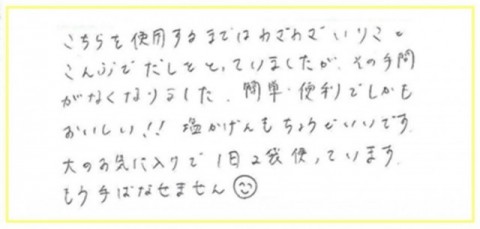 こちらを使用するまではわざわざいりこと
こんぶでだしをとっていましたが、その手間
がなくなりました。簡単・便利でしかも
おいしい!! 塩かげんもちょうどいいです。
大のお気に入りで1日2袋使っています。
もう手ばなせません☺